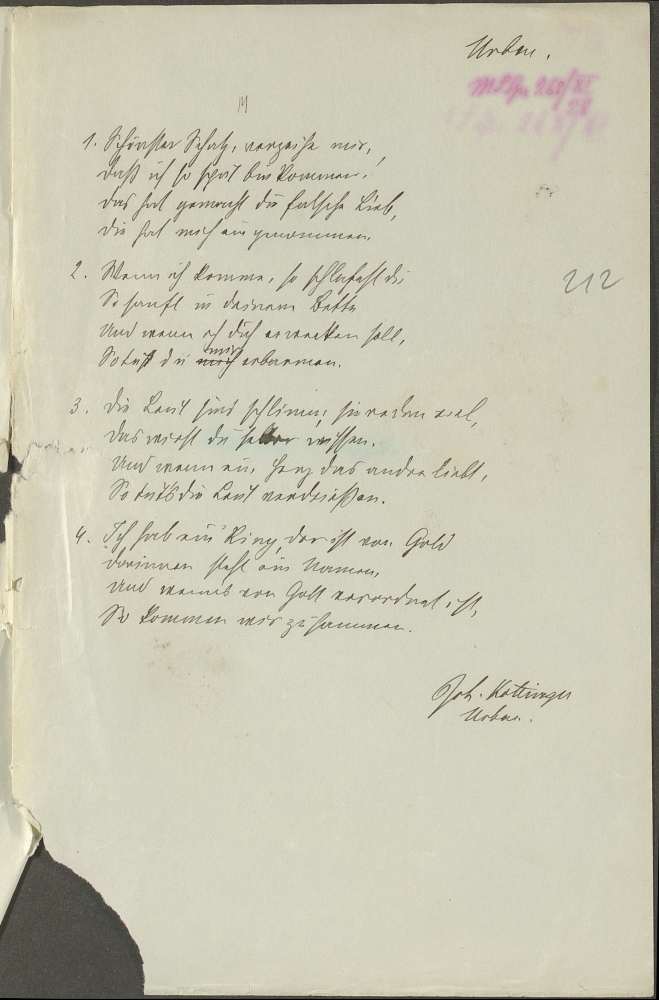 Urban.
MS Gr. 268/XI
28
M
1. Schönster Schatz, verzeihe mir,
daß ich so spät bin kommen.
das hat gemacht die falsche Lieb,
die hat mich eingenommen.
212
2. Wenn ich komme, so schlafest du
So sanft in deinem Bette
Und wenn ich dich erwecken soll,
So tust du mich mir erbarmen.
3. Die Leut sind schlimm, sie reden viel,
das wirst du selber wissen.
Und wenn ein Herz das andre liebt,
So tut's die Leut verdrießen.
4. Ich hab ein Ring, der ist von Gold
darinnen steht ein Namen,
und wenns von Gott verordnet ist,
So kommen wir zusammen.
Joh. Kottinger
Urban.